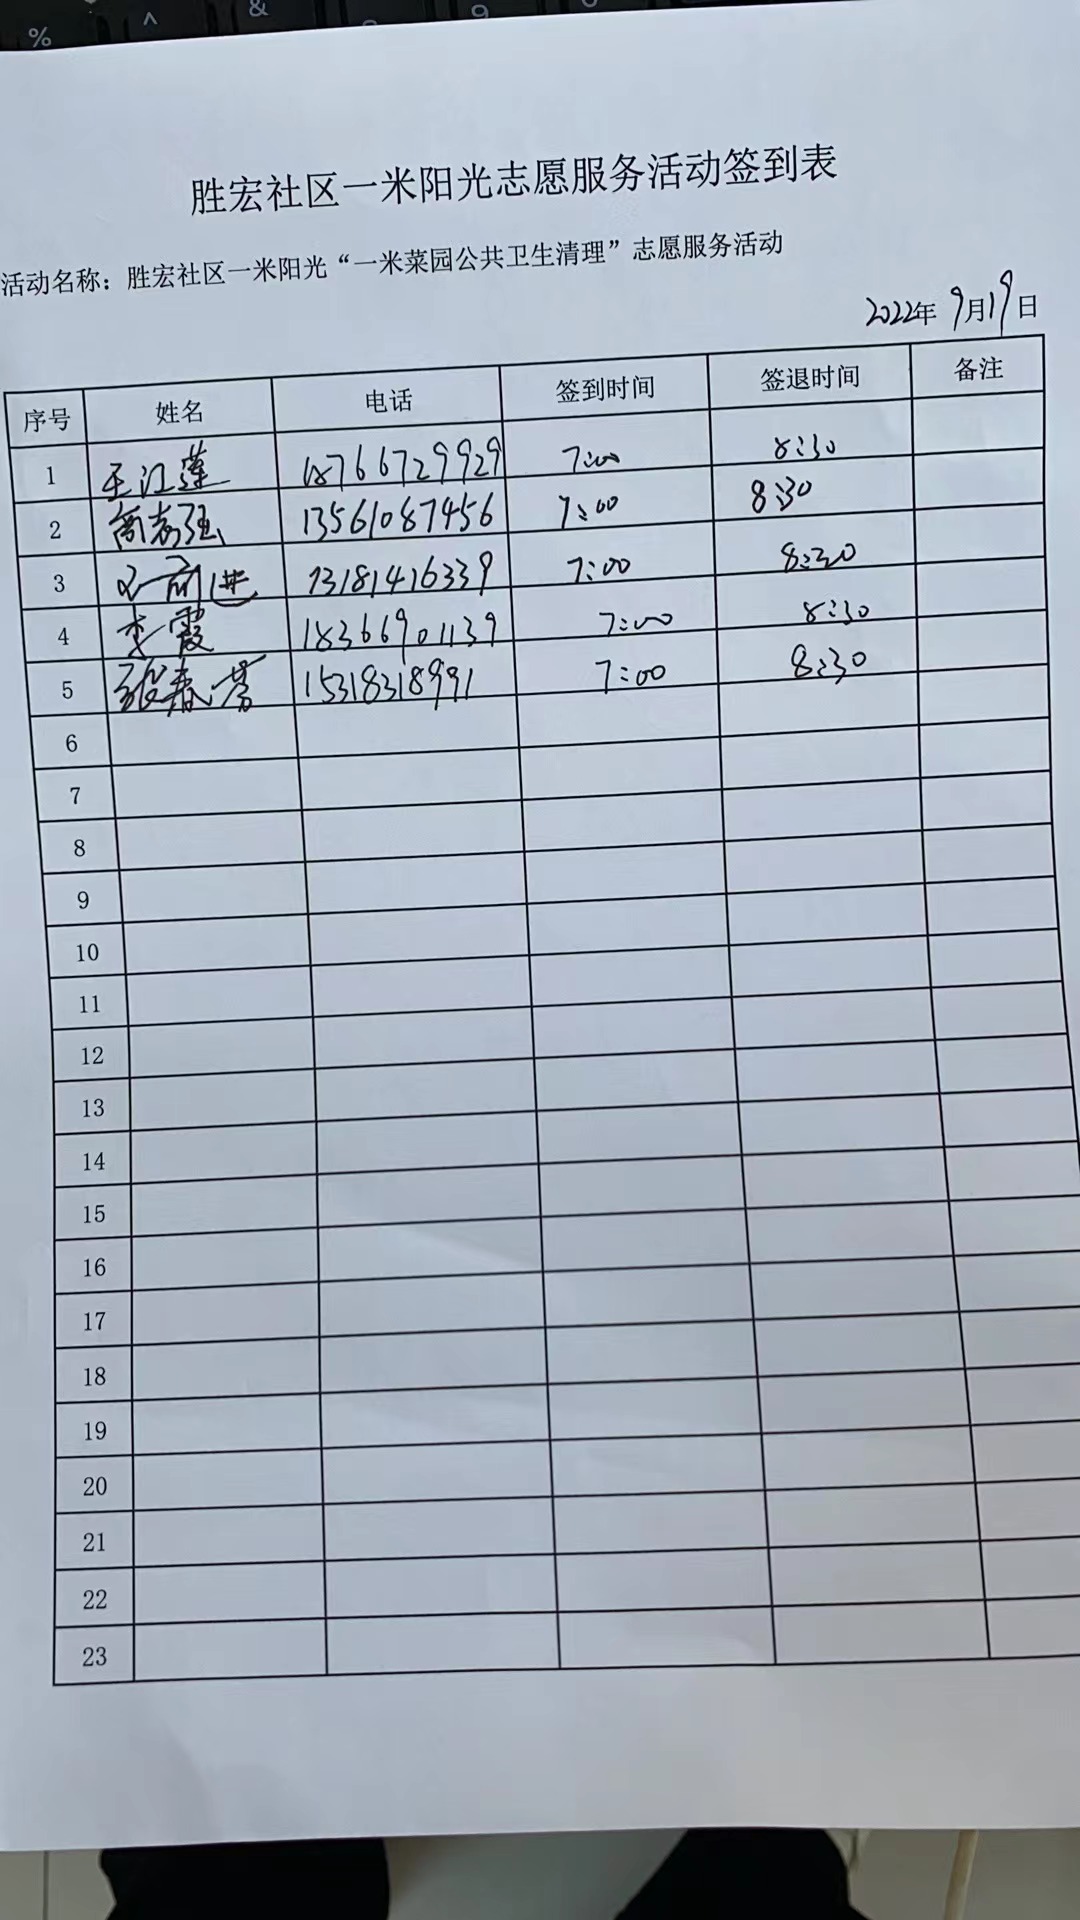 胜宏社区一米阳光志愿服务活动签到表
活动名称：胜宏社区一米阳光“一米菜园公共卫生清理”志愿服务活动
2022年 9月19日
序号 姓名 电话 签到时间 签退时间 备注
1 王江莲 18766729929 7:00 8:30
2 13561087456 7:00 8:30
3 前进 13181416339 7:00 8:30
4 李霞 18366901139 7:00 8:30
5 张春芳 15318318991 7:00 8:30
6
7
8
9
10
11
12
13
14
15
16
17
18
19
20
21
22
23